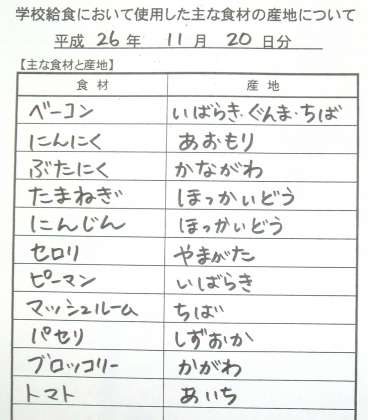 学校給食において使用した主な食材の産地について
平成 26 年 11 月 20 日分
【主な食材と産地】
食材 産地
ベーコン いばらき・ぐんま・ちば
にんにく あおもり
ぶたにく かながわ
たまねぎ ほっかいどう
にんじん ほっかいどう
セロリ やまがた
ピーマン いばらき
マッシュルーム ちば
パセリ しずおか
ブロッコリー かがわ
トマト あいち